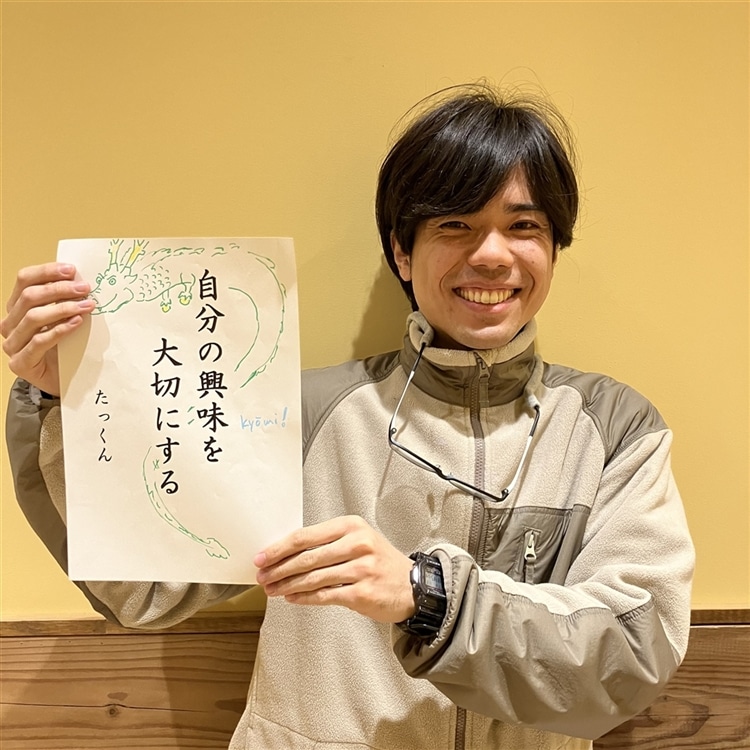 自分の興味を
大切にする
たっくん
kyōmi!